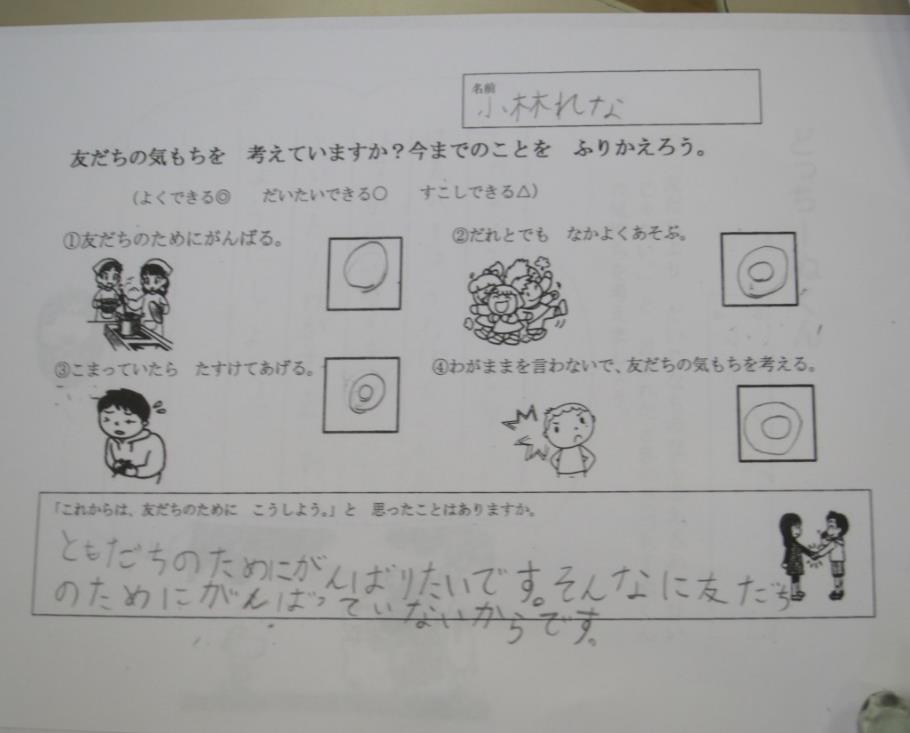 名前
小林れな
友だちの気もちを 考えていますか?今までのことを ふりかえろう。
(よくできる◎ だいたいできる○ すこしできる△)
①友だちのためにがんばる。 ○
②だれとでも なかよくあそぶ。 ◎
③こまっていたら たすけてあげる。 ◎
④わがままを言わないで、友だちの気もちを考える。 ◎
「これからは、友だちのために こうしよう。」と 思ったことはありますか。
ともだちのためにがんばりたいです。そんなに友だち
のためにがんばっていないからです。